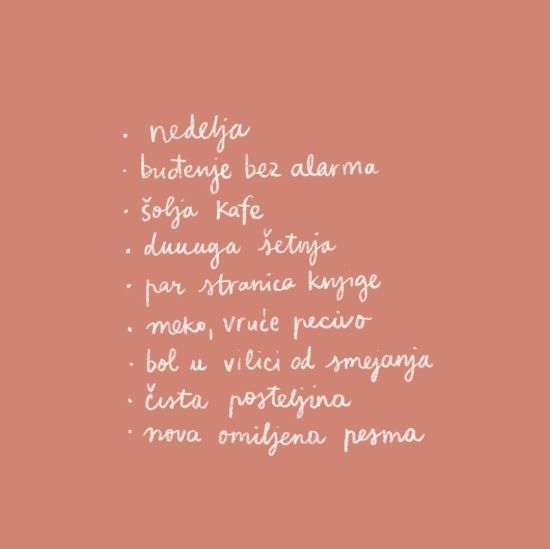 · nedelja
· buđenje bez alarma
· šolja kafe
· duuuga šetnja
· par stranica knjige
· meko, vruće pecivo
· bol u vilici od smejanja
· čista posteljina
· nova omiljena pesma